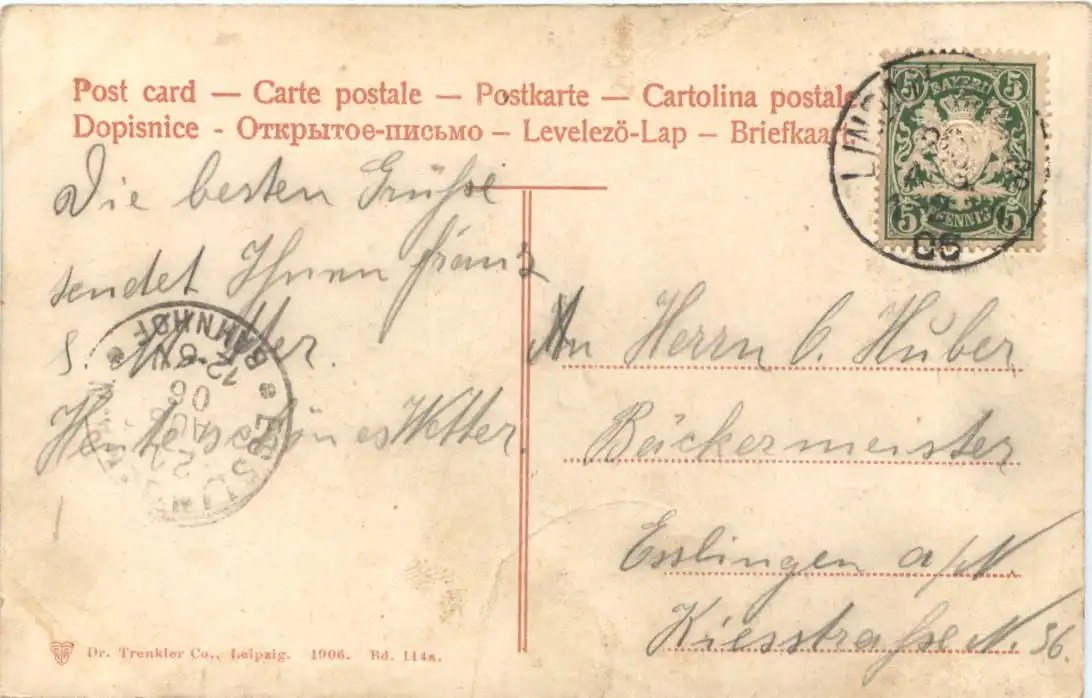 Post card — Carte postale — Postkarte — Cartolina postale
Dopisnice - Открытое-письмо — Levelező-Lap — Briefkaart.
BAYERN
5 5
5 5
PFENNIG
06
Die besten Grüße
sendet Ihnen Franz
S.
Heute schönes Wetter.
BAHNHOF
12-6N
06
AUG
2
An Herrn C. Huber
Bäckermeister
Esslingen a/N.
Kiesstraße N. 56.
Dr. Trenkler Co., Leipzig. 1906. Bd. 114a.